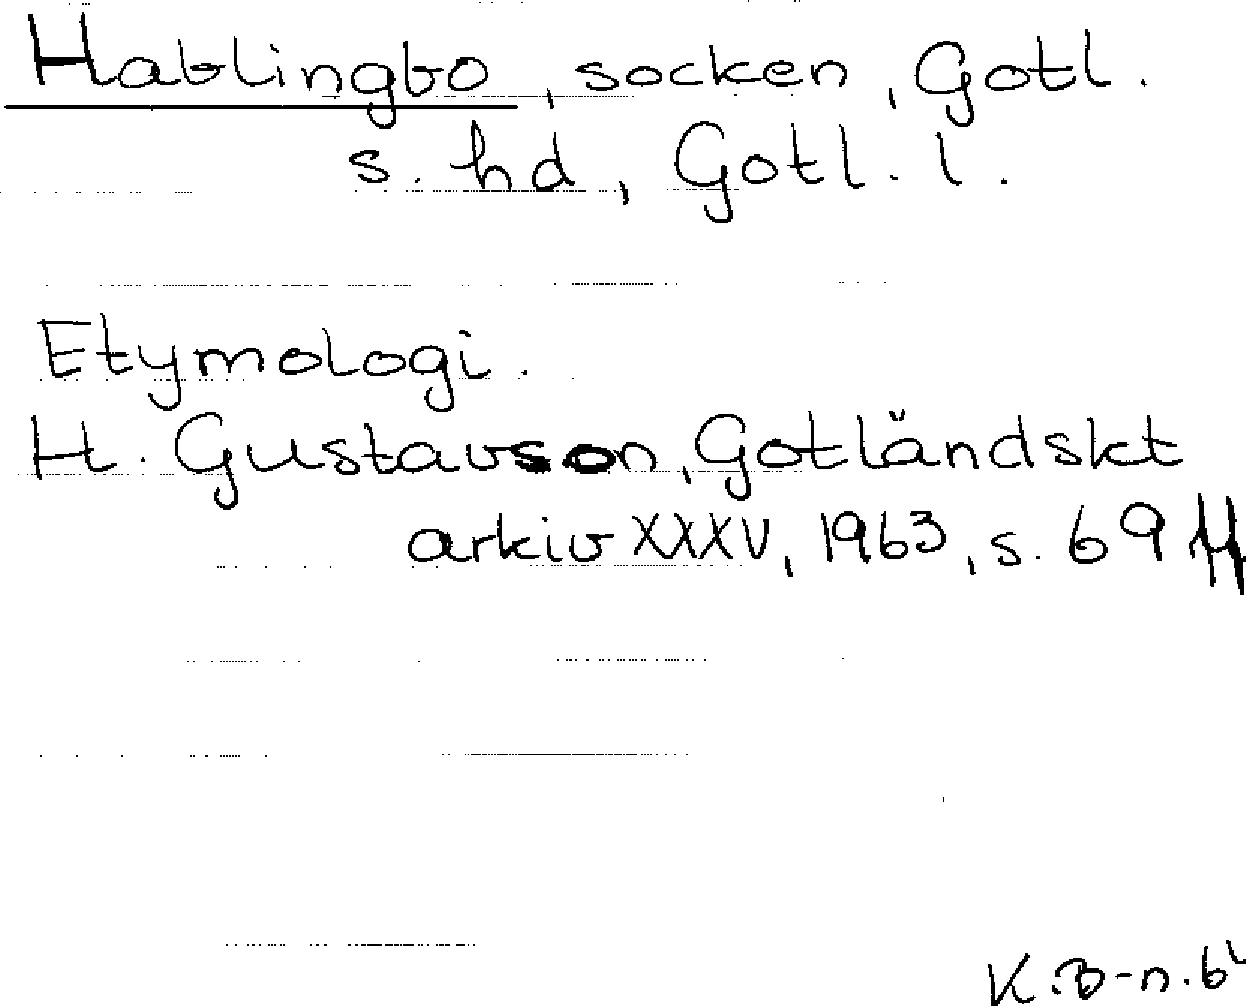 Hablingbo, socken, Gotl.
s. hd, Gotl. l.
Etymologi.
H. Gustavson, Gotländskt
arkiv XXXV, 1963, s. 69 ff
K.B-n.